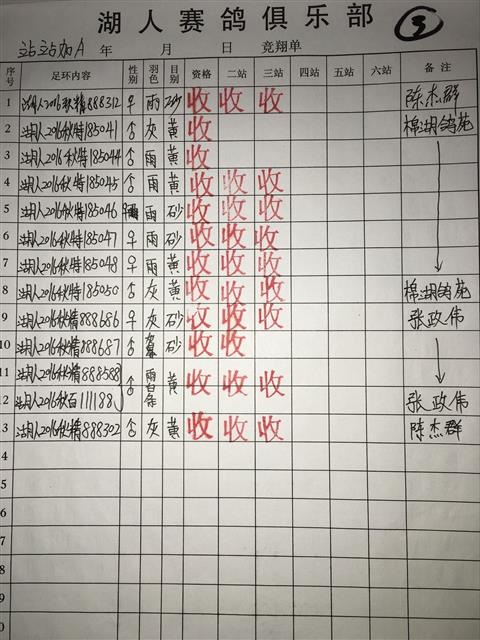 湖人赛鸽俱乐部 ③
站站加A 年 月 日 竞翔单
序号 足环内容 性别 羽色 目别 资格 二站 三站 四站 五站 六站 备注
1 湖人2016秋精888312 早 雨 砂 收 收 收 陈杰群
2 湖人2016秋特185041 灰 黄 收 棉湖鸽苑
3 湖人2016秋特185044 雨 黄 收
4 湖人2016秋特185045 雨 黄 收 收 收
5 湖人2016秋特185046 雨 砂 收 收 收
6 湖人2016秋特185047 早 雨 砂 收 收 收
7 湖人2016秋特185048 早 雨 黄 收 收 收
8 湖人2016秋特185050 灰 黄 收 收 收 棉湖鸽苑
9 湖人2016秋精888686 早 灰 砂 收 收 收 张政伟
10 湖人2016秋精888687 砂 收 收
11 湖人2016秋精888588 雨白条 黄 收 收 收
12 湖人2016秋百111188 张政伟
13 湖人2016秋精888302 灰 黄 收 收 收 陈杰群
4
5
6
7
8
9
0